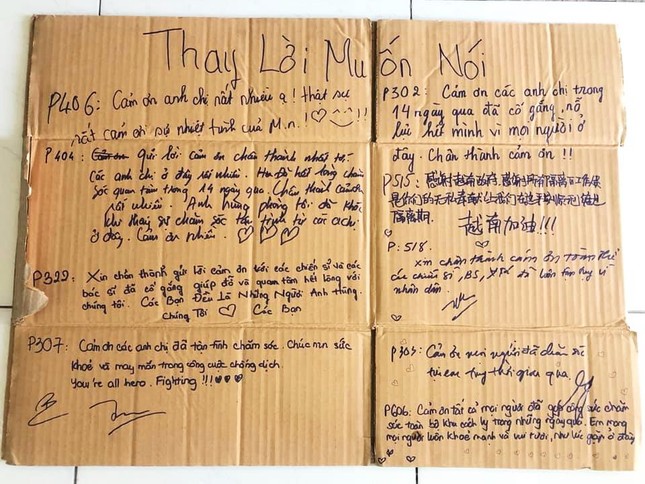 Thay Lời Muốn Nói
P406: Cảm ơn anh chị rất nhiều ạ! thật sự
rất cảm ơn sự nhiệt tình của M.n!
P404: gửi lời cảm ơn chân thành nhất tới
các anh chị ở đây rất nhiều. Họ đã hết lòng chăm
sóc quan tâm trong 14 ngày qua. Chân thành cảm ơn
rất nhiều. Anh hùng phòng tôi đã khóc
khi thấy sự chăm sóc tận tình từ các a chị
ở đây. Cảm ơn nhiều.
P322: Xin chân thành gửi lời cảm ơn tới các chiến sĩ và các
bác sĩ đã cố gắng giúp đỡ và quan tâm hết lòng với
chúng tôi. Các Bạn Đều Là Những Người Anh Hùng.
Chúng Tôi Các Bạn
P307: Cảm ơn các anh chị đã tận tình chăm sóc. Chúc mn sức
khoẻ và may mắn trong công cuộc chống dịch.
You're all hero. Fighting!!!
P302: Cảm ơn các anh chị trong
14 ngày qua đã cố gắng, nỗ
lực hết mình vì mọi người ở
đây. Chân thành cảm ơn!!
P515: 感谢越南政府, 感谢
是你们的无私奉献让我们在这
隔离期.
越南加油!!!
P: 518.
xin chân thành cảm ơn toàn thể
các chiến sĩ, BS, đã luôn tận tụy vì
nhân dân.
P303: Cảm ơn mọi người đã chăm sóc
tụi em trong thời gian qua.
P606: Cảm ơn tất cả mọi người đã góp công sức chăm
sóc toàn bộ khu cách ly trong những ngày qua. Em mong
mọi người luôn khoẻ mạnh và vui tươi, như lúc gặp ở đây